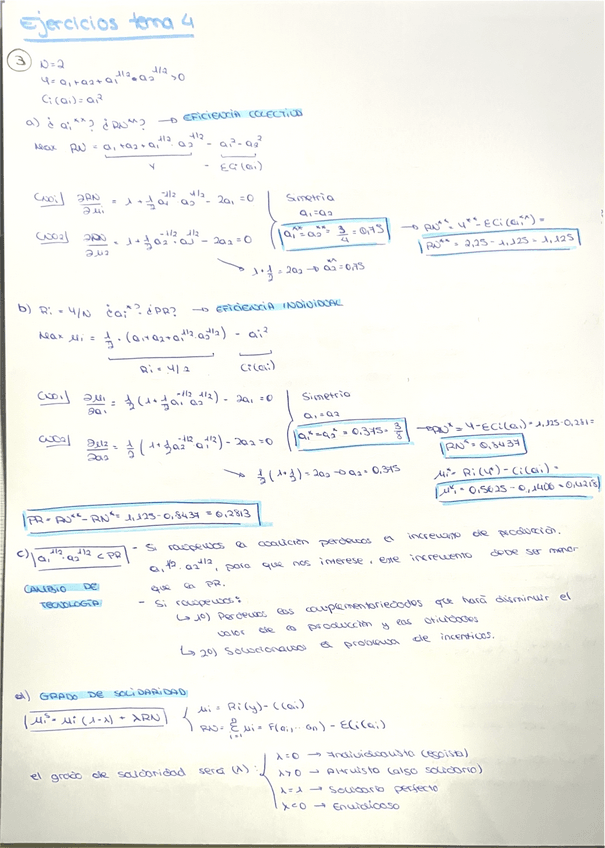 Ejercicios tema 4
3 N=2
Y = a1 + a2 + a1^1/2 · a2^1/2 > 0
Ci(ai) = ai²
a) ¿ ai** ? ¿ RN** ? → EFICIENCIA COLECTIVA
Max RN = a1 + a2 + a1^1/2 · a2^1/2 - a1² - a2²
Y - ΣCi(ai)
CPO1] ∂RN/∂a1 = 1 + 1/2 a1^-1/2 a2^1/2 - 2a1 = 0
Simetría
a1 = a2
CPO2] ∂RN/∂a2 = 1 + 1/2 a2^-1/2 · a1^1/2 - 2a2 = 0
a1** = a2** = 3/4 = 0,75
→ RN** = Y** - ΣCi(ai**) =
RN** = 2,25 - 1,125 = 1,125
→ 1 + 1/2 = 2a2 → a2** = 0,75
b) Ri = Y/N ¿ ai* ? ¿ PR? → EFICIENCIA INDIVIDUAL
Max μi = 1/2 · (a1 + a2 + a1^1/2 · a2^1/2) - ai²
Ri = Y/2 Ci(ai)
CPO1] ∂μ1/∂a1 = 1/2 (1 + 1/2 a1^-1/2 a2^1/2) - 2a1 = 0
Simetría
a1 = a2
CPO2] ∂μ2/∂a2 = 1/2 (1 + 1/2 a2^-1/2 a1^1/2) - 2a2 = 0
a1* = a2* = 0,375 = 3/8
→ RN* = Y - ΣCi(ai) = 1,125 - 0,281 =
RN* = 0,8437
→ 1/2 (1 + 1/2) = 2a2 → a2 = 0,375
μi* = Ri(Y*) - Ci(ai) =
μ*i = 0,5625 - 0,1406 = 0,4218
PR = RN** - RN* = 1,125 - 0,8437 = 0,2813
c) a1^1/2 · a2^1/2 < PR - Si rompemos la coalición perdemos el incremento de producción.
a1^1/2 · a2^1/2, para que nos interese, este incremento debe ser menor
que la PR.
CAMBIO DE
TECNOLOGÍA
- Si rompemos:
↳ 1º) Perdemos las complementariedades que hará disminuir el
valor de la producción y las utilidades
↳ 2º) Solucionamos el problema de incentivos.
d) GRADO DE SOLIDARIDAD
μi^s = μi (1-λ) + λRN
μi = Ri(y) - C(ai)
RN = Σ μi = F(a1,... an) - ΣCi(ai)
el grado de solidaridad será (λ):
λ=0 → Individualista (egoísta)
λ>0 → Altruista (algo solidario)
λ=1 → Solidario perfecto
λ<0 → Envidioso